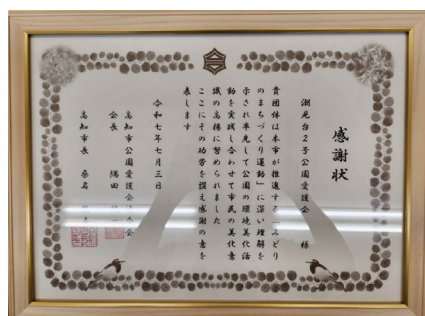 感謝状
潮見台2号公園愛護会 様
貴団体は本市が推進する「みどり
のまちづくり運動」に深い理解を
示され率先して公園の環境美化活
動を実践し合わせて市民の美化意
識の高揚に努められました
ここにその功労を讃え感謝の意を
表します
令和七年七月三日
高知市公園愛護会
会長 隅田
高知市長 桑名